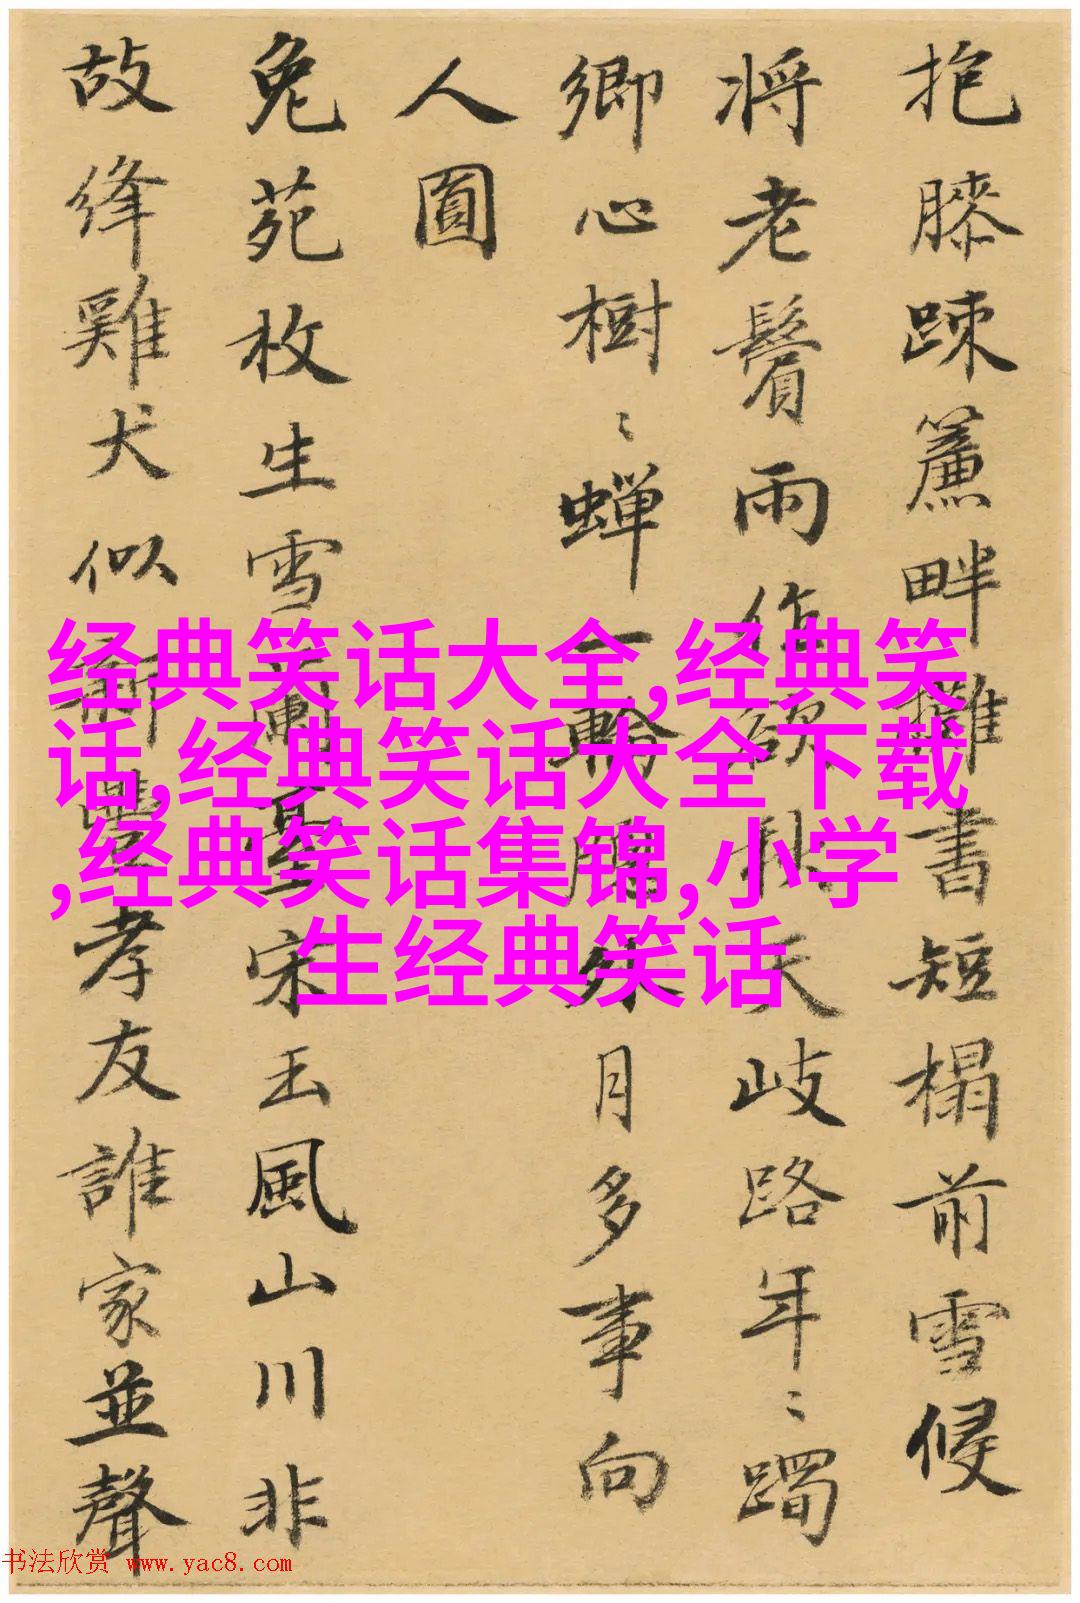 抱膝踈簾畔攤書短榻前雪侵
将老鬢雨作欲秋天岐路年〻躅
鄉心樹〻蝉一輪外月多事向
人圓
兔苑枚生雪蘭臺宋玉風山川非
故絳雞犬似新豐孝友誰家並聲
经典笑话大全,经典笑
话,经典笑话大全下载
,经典笑话集锦,小学
生经典笑话
书法欣赏 www.yac8.com